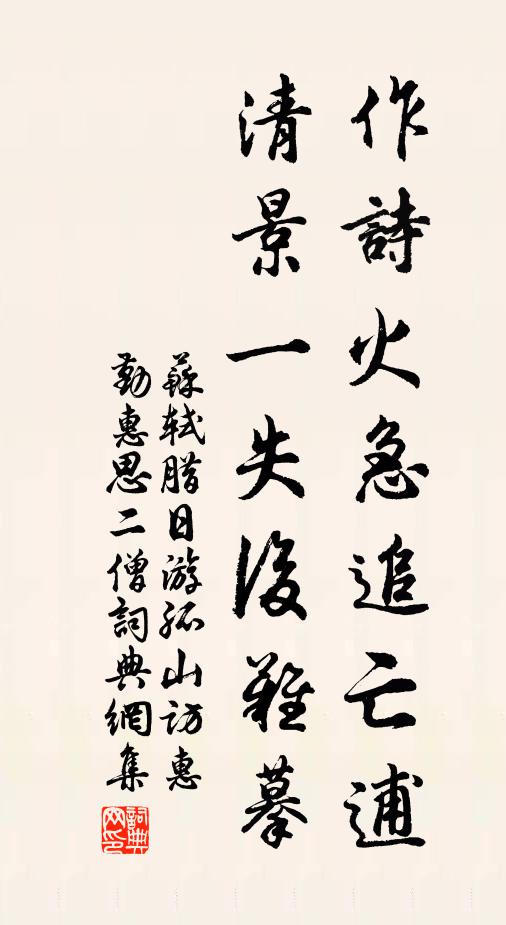 作詩火急追亡逋
清景一失後難摹
蘇軾腊日游孤山訪惠
勤惠思二僧詞典網集
詞典
网印